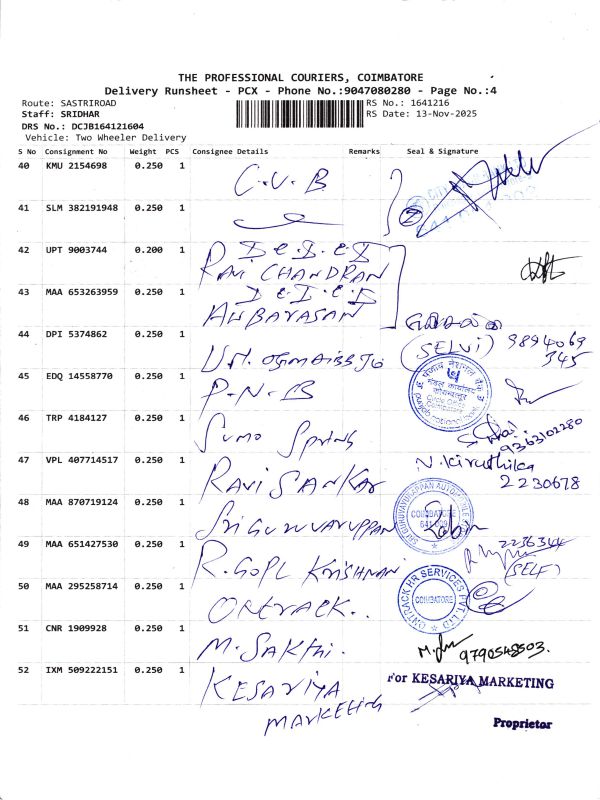 THE PROFESSIONAL COURIERS, COIMBATORE
Delivery Runsheet - PCX - Phone No.:9047080280 - Page No.:4
Route: SASTRIROAD
RS No.: 1641216
Staff: SRIDHAR
RS Date: 13-Nov-2025
DRS No.: DCJB164121604
Vehicle: Two Wheeler Delivery
S No Consignment No Weight PCS Consignee Details Remarks Seal & Signature
40 KMU 2154698 0.250 1 C.U.B
41 SLM 382191948 0.250 1
42 UPT 9003744 0.200 1 D.E.I.E.D
RAVI CHANDRAN
43 MAA 653263959 0.250 1
ANBARASAN
44 DPI 5374862 0.250 1
(SELVI) 9894069
345
45 EDQ 14558770 0.250 1 P.N.B
46 TRP 4184127 0.250 1 Sumo Spring
9363102280
47 VPL 407714517 0.250 1 RAVI SANKAR N.Kiruthika
2230678
48 MAA 870719124 0.250 1 Sri Guruvaruppan
COIMBATORE
49 MAA 651427530 0.250 1 R. GOPL Krishnan 2236344
(SELF)
50 MAA 295258714 0.250 1 ONTRACK..
ONTRACK HR SERVICES PVT. LTD
COIMBATORE
51 CNR 1909928 0.250 1 M. SAKTHI.
9790548503.
52 IXM 509222151 0.250 1 KESARIYA
MARKETING
For KESARIYA MARKETING
Proprietor